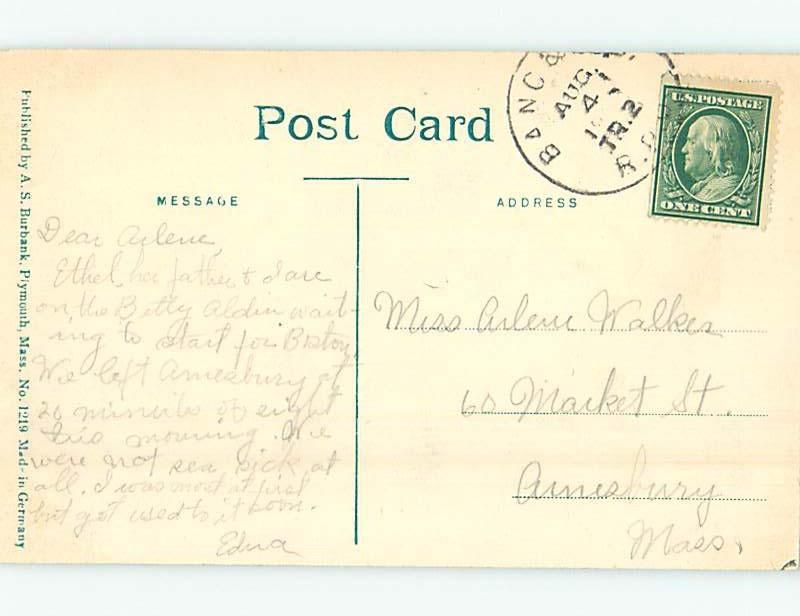 Published by A. S. Burbank, Plymouth, Mass. No. 1219 Mad- in Germany
Post Card
MESSAGE
ADDRESS
BANG &
AUG
4
TR. 2
R.P.
U.S. POSTAGE
ONE CENT
Dear Arlene,
Ethel, her father & I are
on the Betty Aldin wait-
ing to start for Boston.
We left Amesbury at
20 minutes of eight
this morning. We
were not sea sick at
all. I was most at first
but got used to it soon.
Edna
Miss Arlene Walker
60 Market St.
Amesbury
Mass.